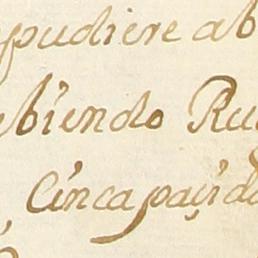 pudiere ab
ebiendo Ru
Cincapaçida